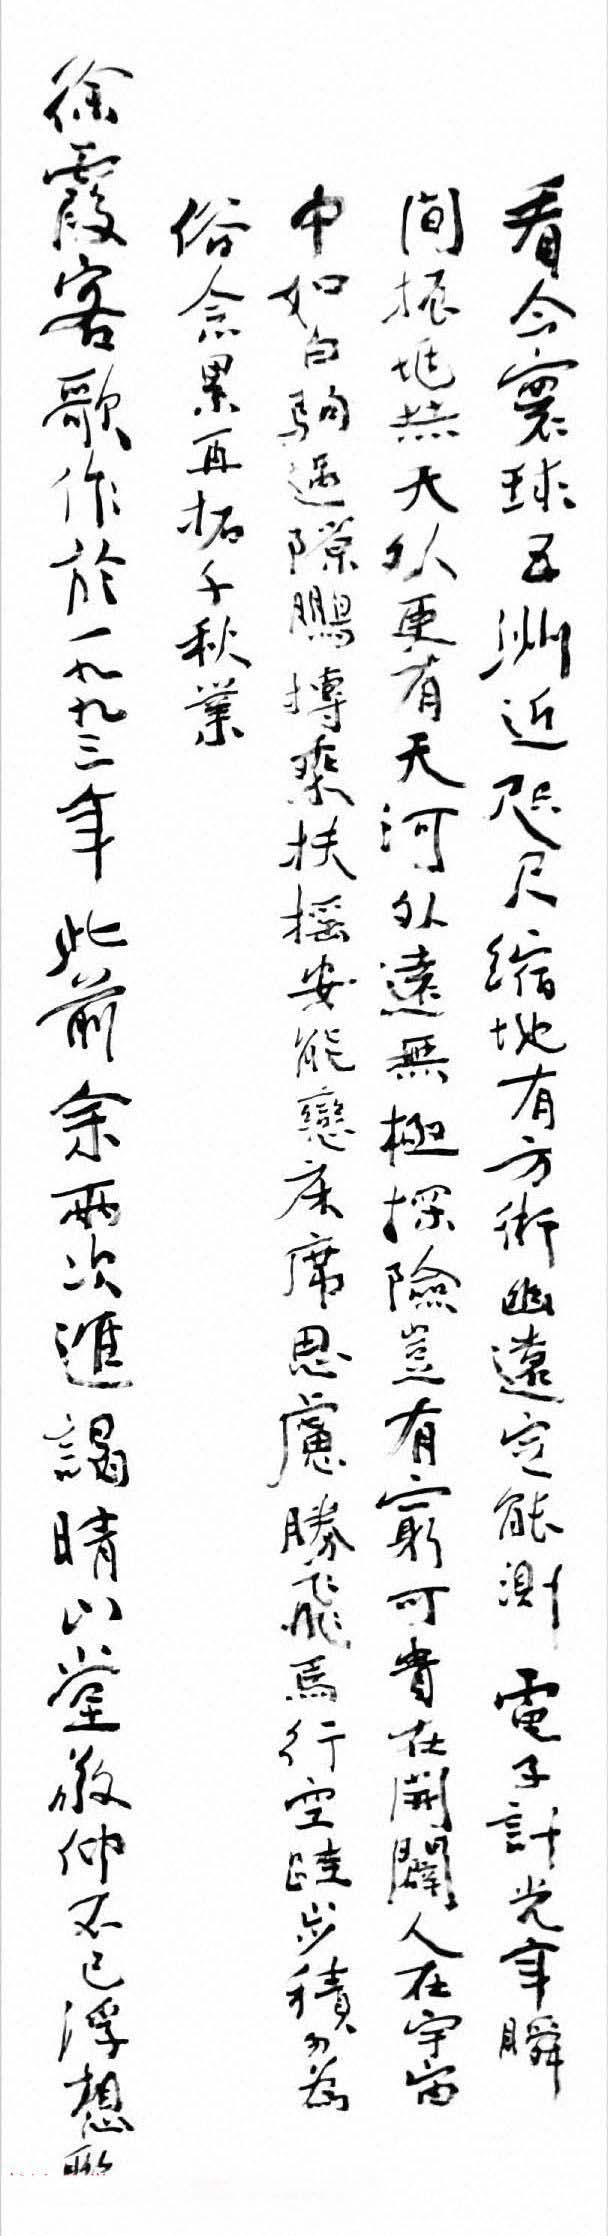 看今寰球五洲近咫尺縮地有方術幽遠定能測電子計光年瞬
間振地然天外更有天河外遠無極探險豈有窮可貴在開闢人在宇宙
中如白駒過隙鵬搏乘扶搖安能戀床席思慮勝飛馬行空跬步積不為
俗念累再拓千秋業
徐霞客歌作於一九九三年此前余兩次進謁晴山堂敬仰不已浮想聯